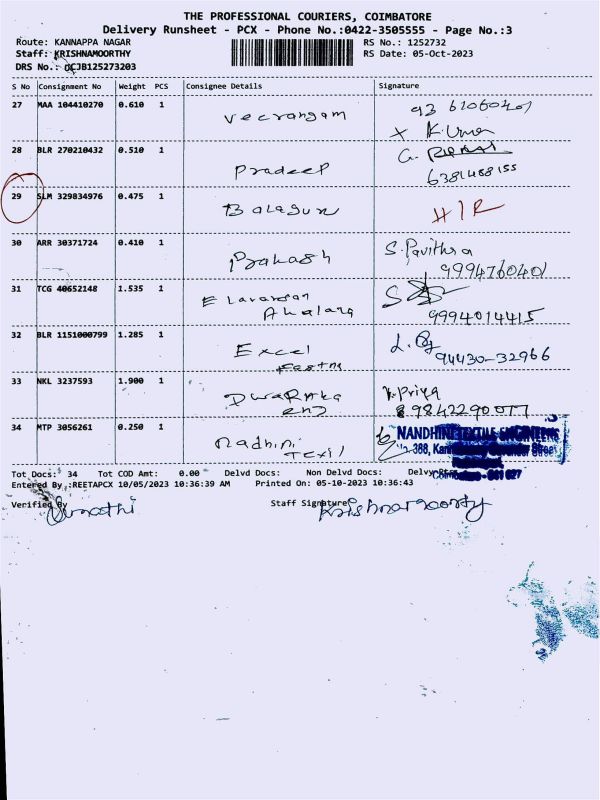 THE PROFESSIONAL COURIERS, COIMBATORE
Delivery Runsheet - PCX - Phone No.:0422-3505555 - Page No.:3
Route: KANNAPPA NAGAR RS No.: 1252732
Staff: KRISHNAMOORTHY RS Date: 05-Oct-2023
DRS No.: CJB125273203
S No Consignment No Weight PCS Consignee Details Signature
27 MAA 104410270 0.610 1 Veerangam
K. Uma
28 BLR 270210432 0.510 1 Pradeep G.
6381488155
29 SLM 329834976 0.475 1 Balagun H/R
30 ARR 30371724 0.410 1 Prakash S. Pavithra
9994760401
31 TCG 40652148 1.535 1
9994014415
32 BLR 1151000799 1.285 1 Excel
94430-32966
33 NKL 3237593 1.900 1 Dwaraka Priya
9842290077
34 MTP 3056261 0.250 1 Nadhini NANDHINI TEXTILE ENGINEERS
Street
Coimbatore - 641 027
Tot Docs: 34 Tot COD Amt: 0.00 Delvd Docs: Non Delvd Docs:
Entered By :REETAPCX 10/05/2023 10:36:39 AM Printed On: 05-10-2023 10:36:43
Verified By Staff Signature
Krishnamoorthy